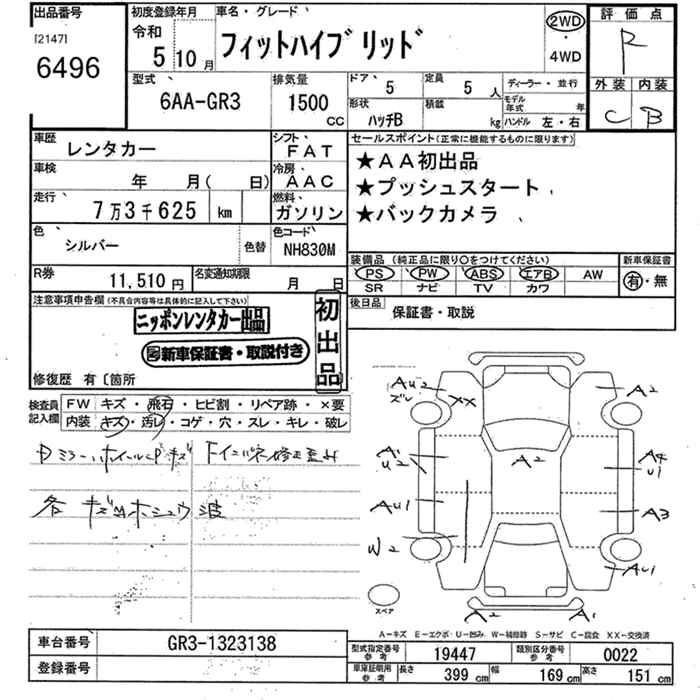 出品番号
[2147]
6496
初度登録年月
令和
5年10月
車名・グレード
フィットハイブリッド
2WD
・
4WD
評価点
R
外装 内装
C B
型式
6AA-GR3
排気量
1500
CC
ドア 5
定員 5 人
形状 ハッチB
積載 kg
ディーラー・並行
モデル年式 年
ハンドル 左・右
車歴
レンタカー
シフト
FAT
車検
年 月( 日)
冷房
AAC
走行
7万3千625 km
燃料
ガソリン
色
シルバー
色替
色コード
NH830M
R券
11,510円
名変通知期限
月 日
セールスポイント(正常に機能するものに限ります)
★AA初出品
★プッシュスタート
★バックカメラ
装備品(純正品に限り〇をつけてください)
新車保証書
PS PW ABS エアB AW
SR ナビ TV カワ
有・無
後日品
保証書・取説
注意事項申告欄(不具合内容等は具体的に記入して下さい)
ニッポンレンタカー出品
新車保証書・取説付き
初出品
修復歴 有〔箇所
検査員記入欄
FW キズ・飛石・ヒビ割・リペア跡・×要
内装 キズ・汚レ・コゲ・穴・スレ・キレ・破レ
各 キズ凹ホシュウ 波
AU2
ズレ
XX
A2
A1
U2
A2
A4
U1
AU1
A3
W2
AU1
スペア
A2
A1
A-キズ E-エクボ・U-凹み W-補修跡 S-サビ C-腐食 XX-交換済
車台番号
GR3-1323138
登録番号
型式指定番号 参考
19447
類別区分番号 参考
0022
車庫証明用 参考
長さ 399 cm
幅 169 cm
高さ 151 cm